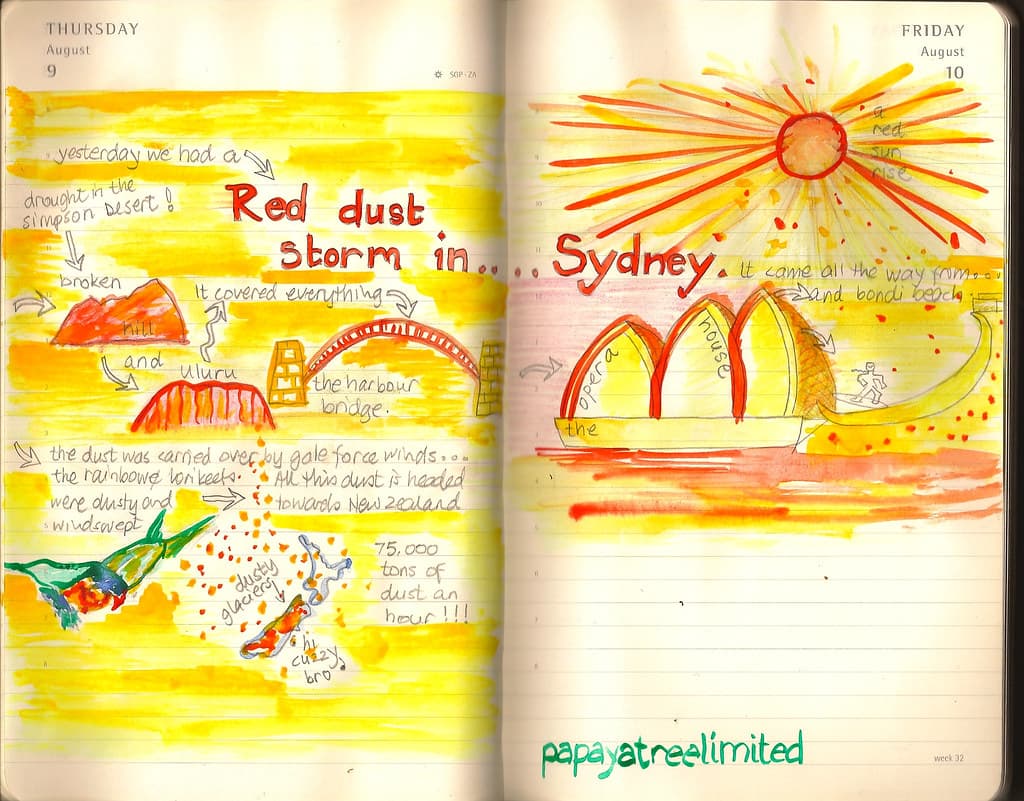 THURSDAY
August
9
SGP-ZA
yesterday we had a
drought in the
simpson Desert!
Red dust
storm in.....
broken
hill
It covered everything
and
uluru
the harbour
bridge.
the dust was carried over by gale force winds...
the rainbowe lorikeets.
were dusty and
windswept
All this dust is headed
towards New Zealand
75,000
tons of
dust an
hour!!!
dusty
glaciers
hi
cuzzy
bro!
FRIDAY
August
10
a
red
sun
rise
Sydney.
It came all the way from...
and bondi beach
opera
house
the
papayatreelimited
week 32